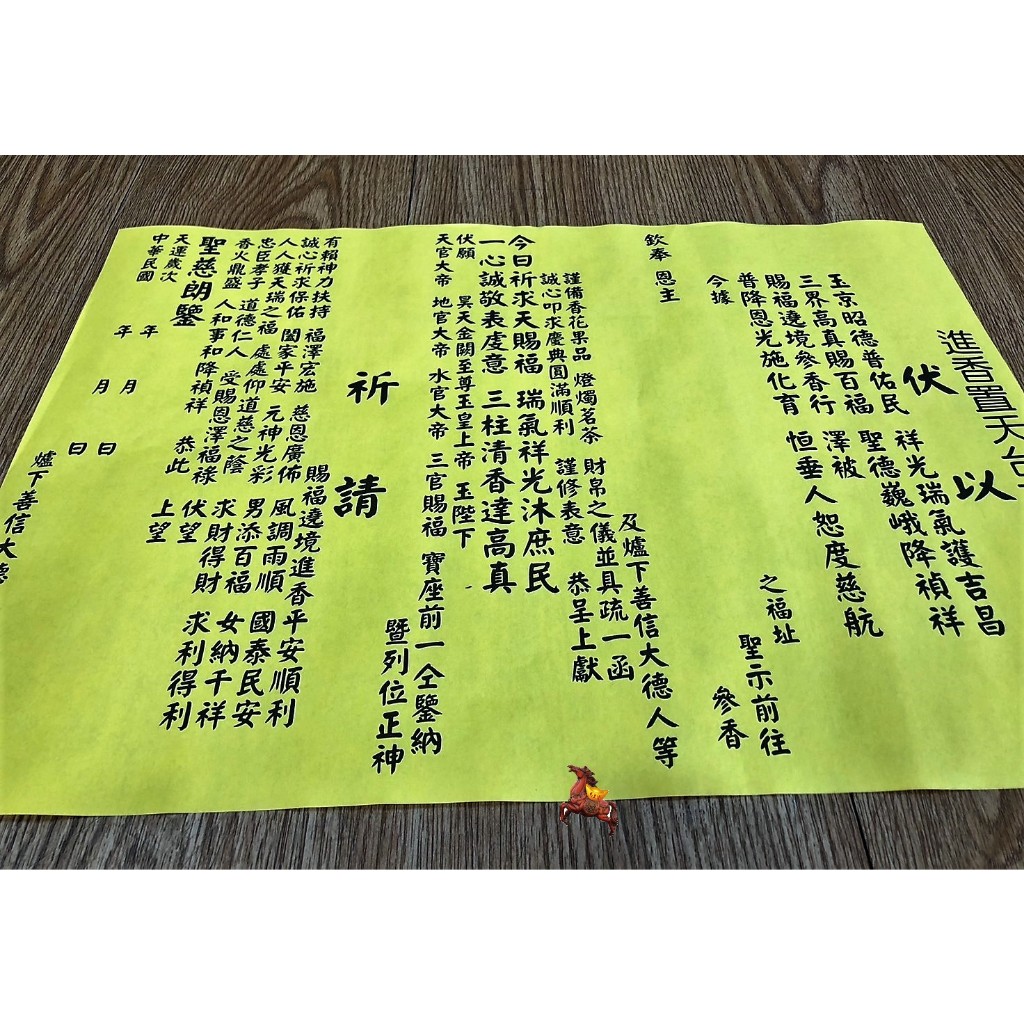 進香置天台
伏以
玉京昭德普佑民 祥光瑞氣護吉昌
三界高真賜百福 聖德巍峨降禎祥
賜福遶境參香行 澤被
普降恩光施化育 恒垂人恕度慈航
今據 之福址 聖示前往
欽奉 恩主 參香
及爐下善信大德人等
謹備香花果品 燈燭茗茶 財帛之儀並具疏一函
誠心叩求慶典圓滿順利 謹修表意 恭呈上獻
今日祈求天賜福 瑞氣祥光沐庶民
一心誠敬表虔意 三柱清香達高真
伏願 昊天金闕至尊玉皇上帝 玉陛下
天官大帝 地官大帝 水官大帝 三官賜福 寶座前一仝鑒納
暨列位正神
祈請
有賴神力扶持 福澤宏施 慈恩廣佈 賜福遶境進香平安順利
誠心祈求保佑 闔家平安 元神光彩 風調雨順 國泰民安
人人獲天瑞之福 處處仰道慈之蔭 男添百福 女納千祥
忠臣孝子 道德仁人 受賜恩澤福祿 求財得財 求利得利
香火鼎盛 人和事和降禎祥 恭此 伏望
聖慈朗鑒 上望
天運歲次 年 月 日
中華民國 年 月 日
爐下善信大德